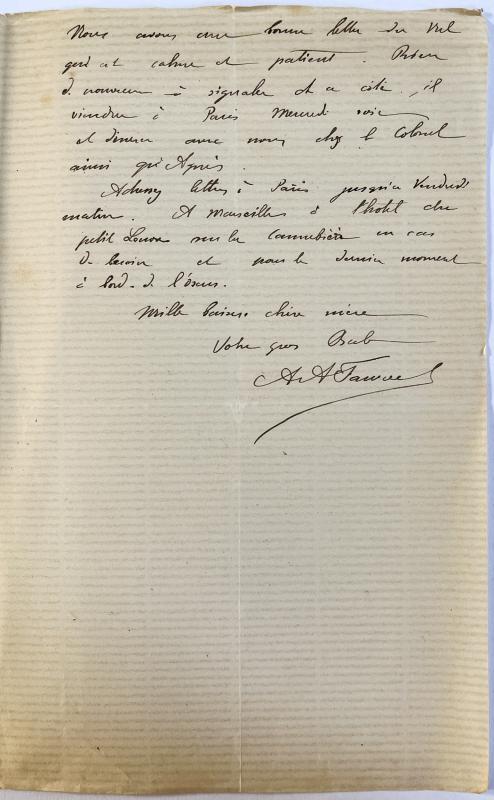 Nous avons une bonne lettre du
qui est calme et patient. Rien
de nouveau à signaler de ce côté, il
viendra à Paris Mercredi soir
et dinera avec nous chez le Colonel
ainsi qu'Agnès.
Adressez lettres à Paris jusqu'à Vendredi
matin. A Marseilles à l'hotel du
petit Louvre sur la Cannebière en cas
de besoin et pour le dernier moment
à bord de l'
Mille baisers chère mère
Votre gros